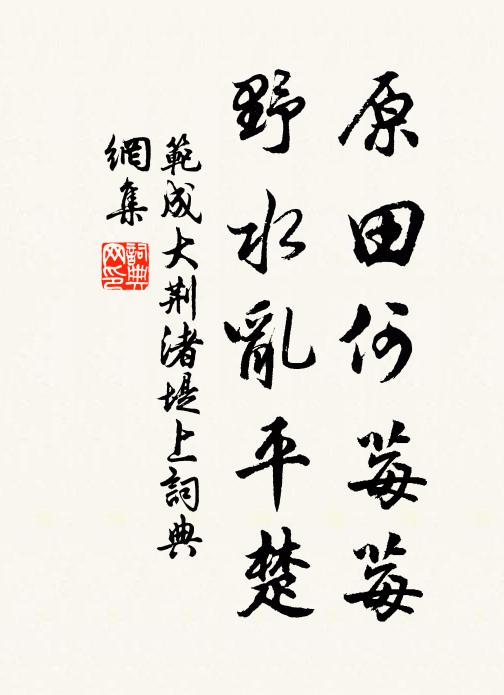 原田何莓莓
野水亂平楚
範成大荆渚堤上詞典
網集
詞典
网印